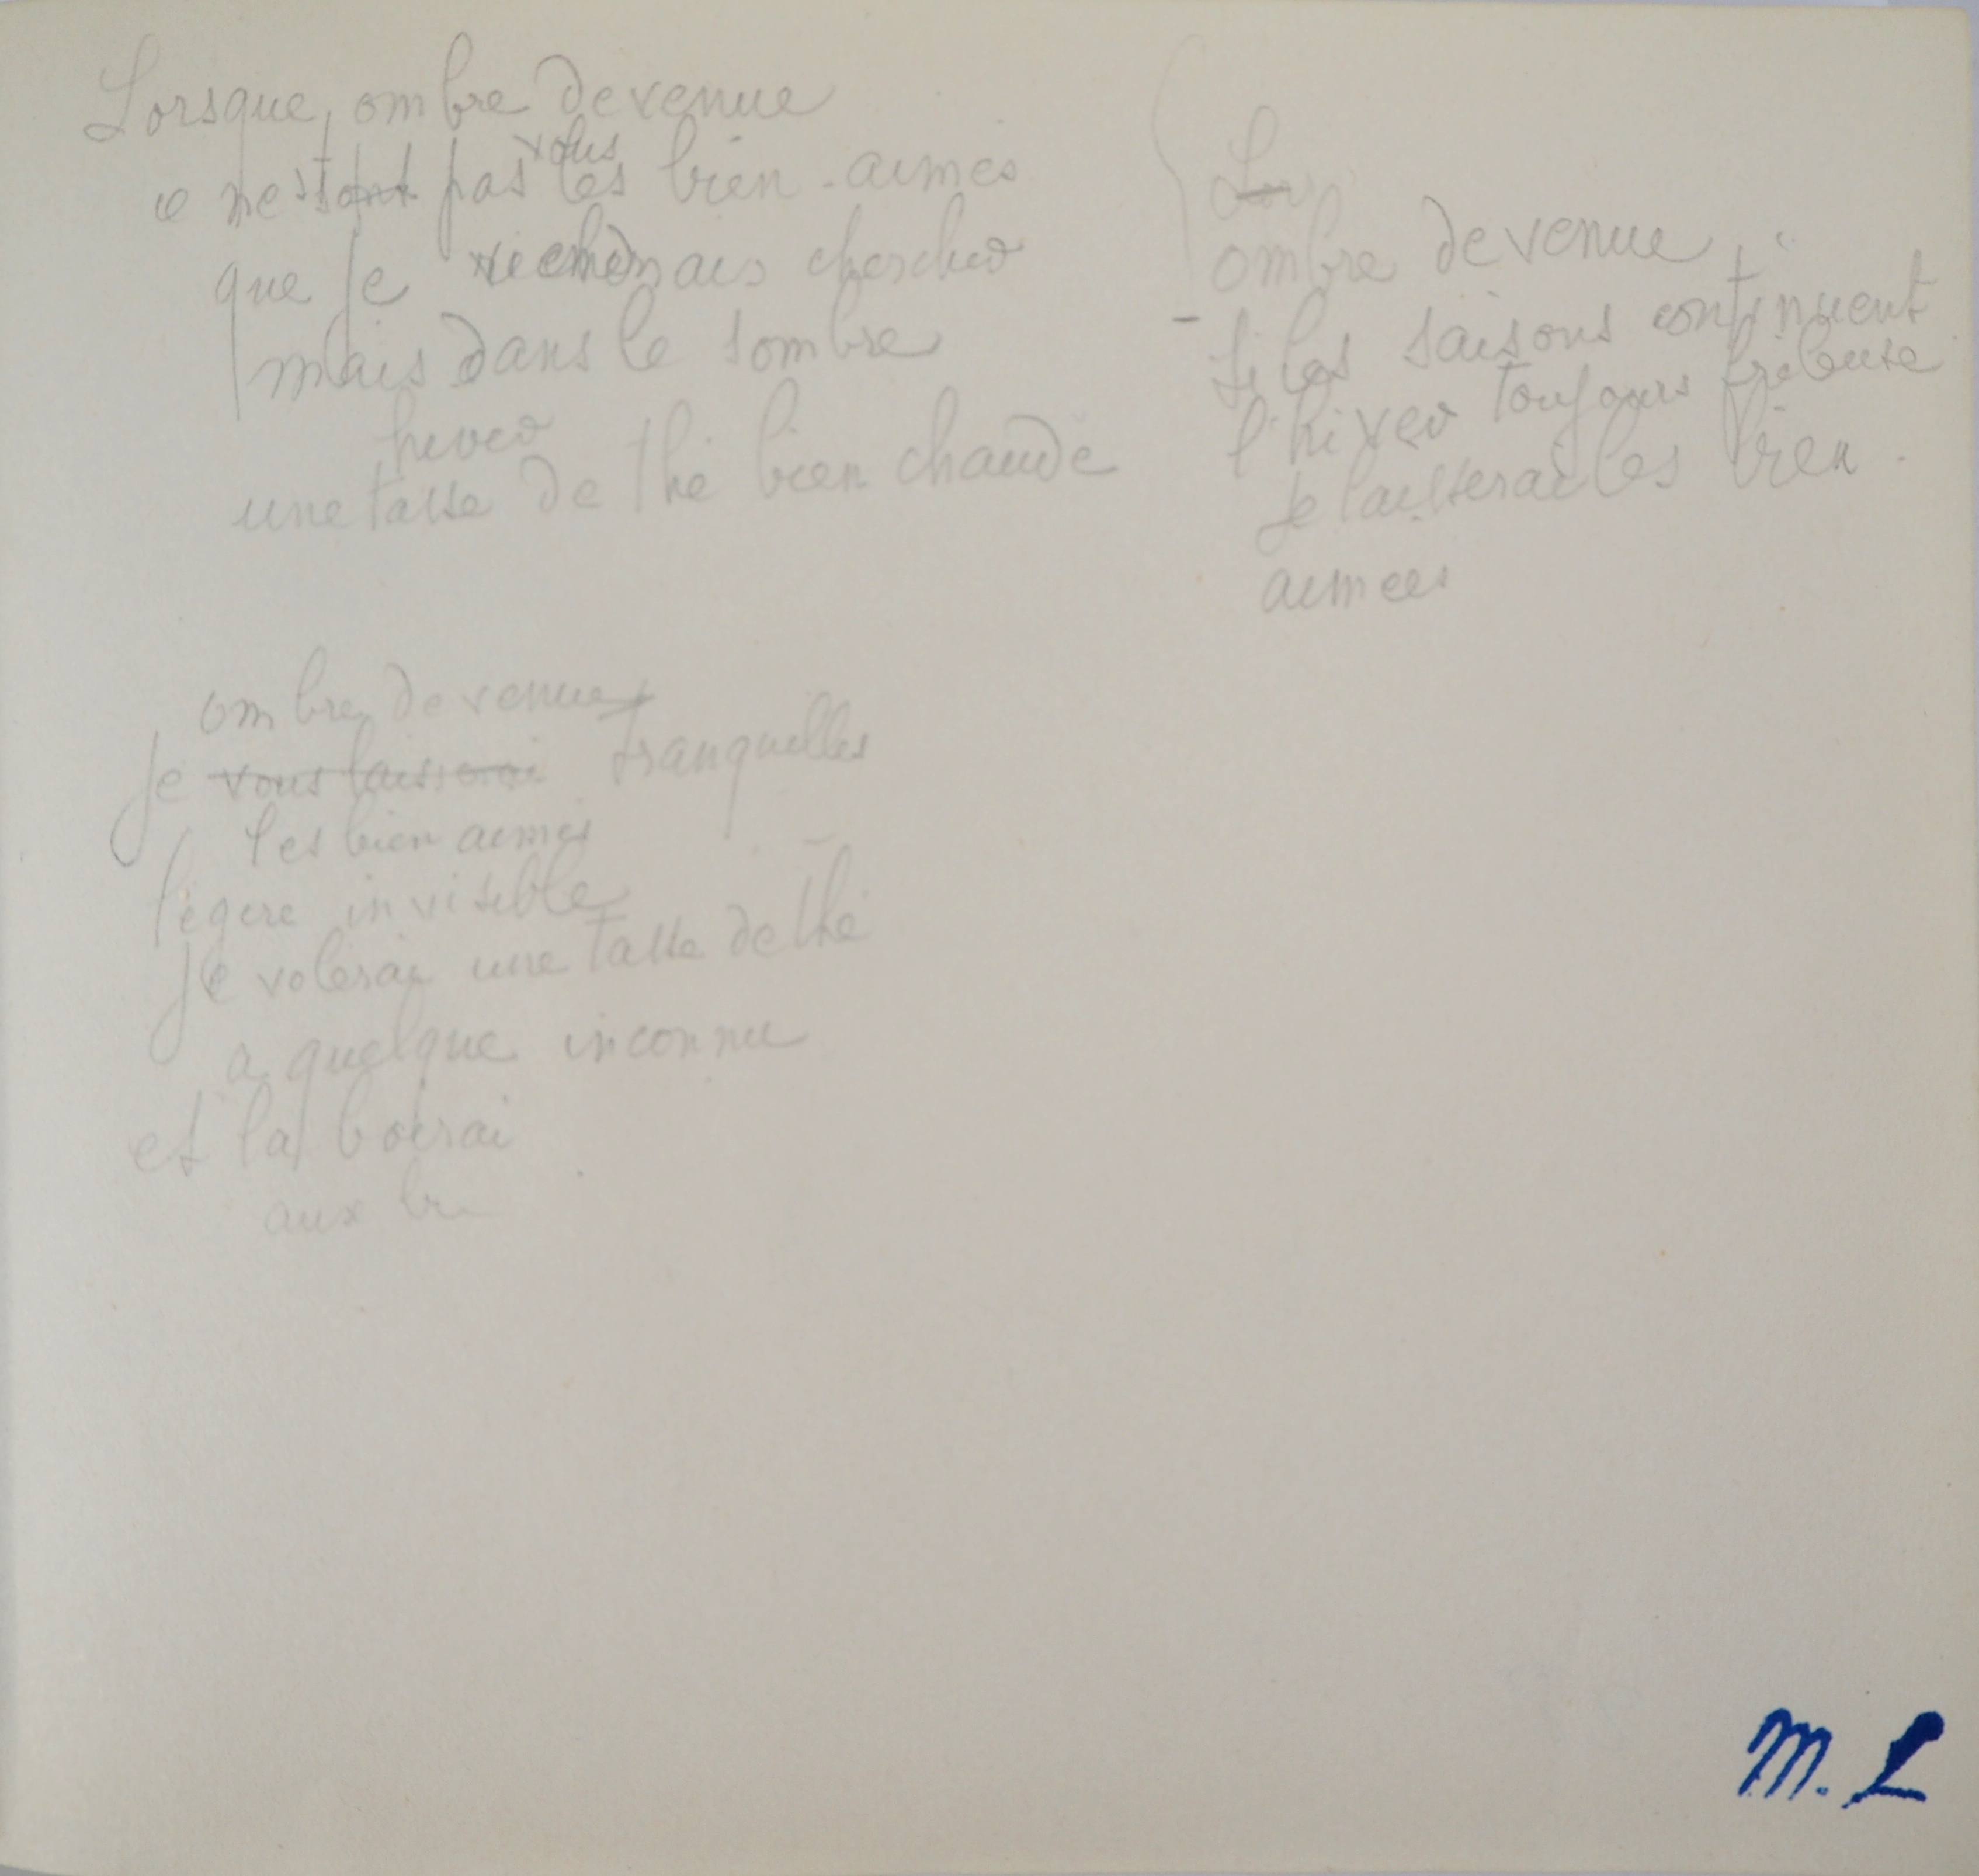 Lorsque, ombre devenue
ce n'est pas vous les bien-aimés
que je viendrais chercher
mais dans le sombre
hiver
une tasse de thé bien chaude
ombre devenue,
si les saisons continuent
l'hiver toujours frileuse
je laisserai les bien
aimées
ombre devenue,
je vous laisserai tranquilles
les bien aimés
légère invisible
je volerai une tasse de thé
a quelque inconnu
et la boirai
aux
M. L